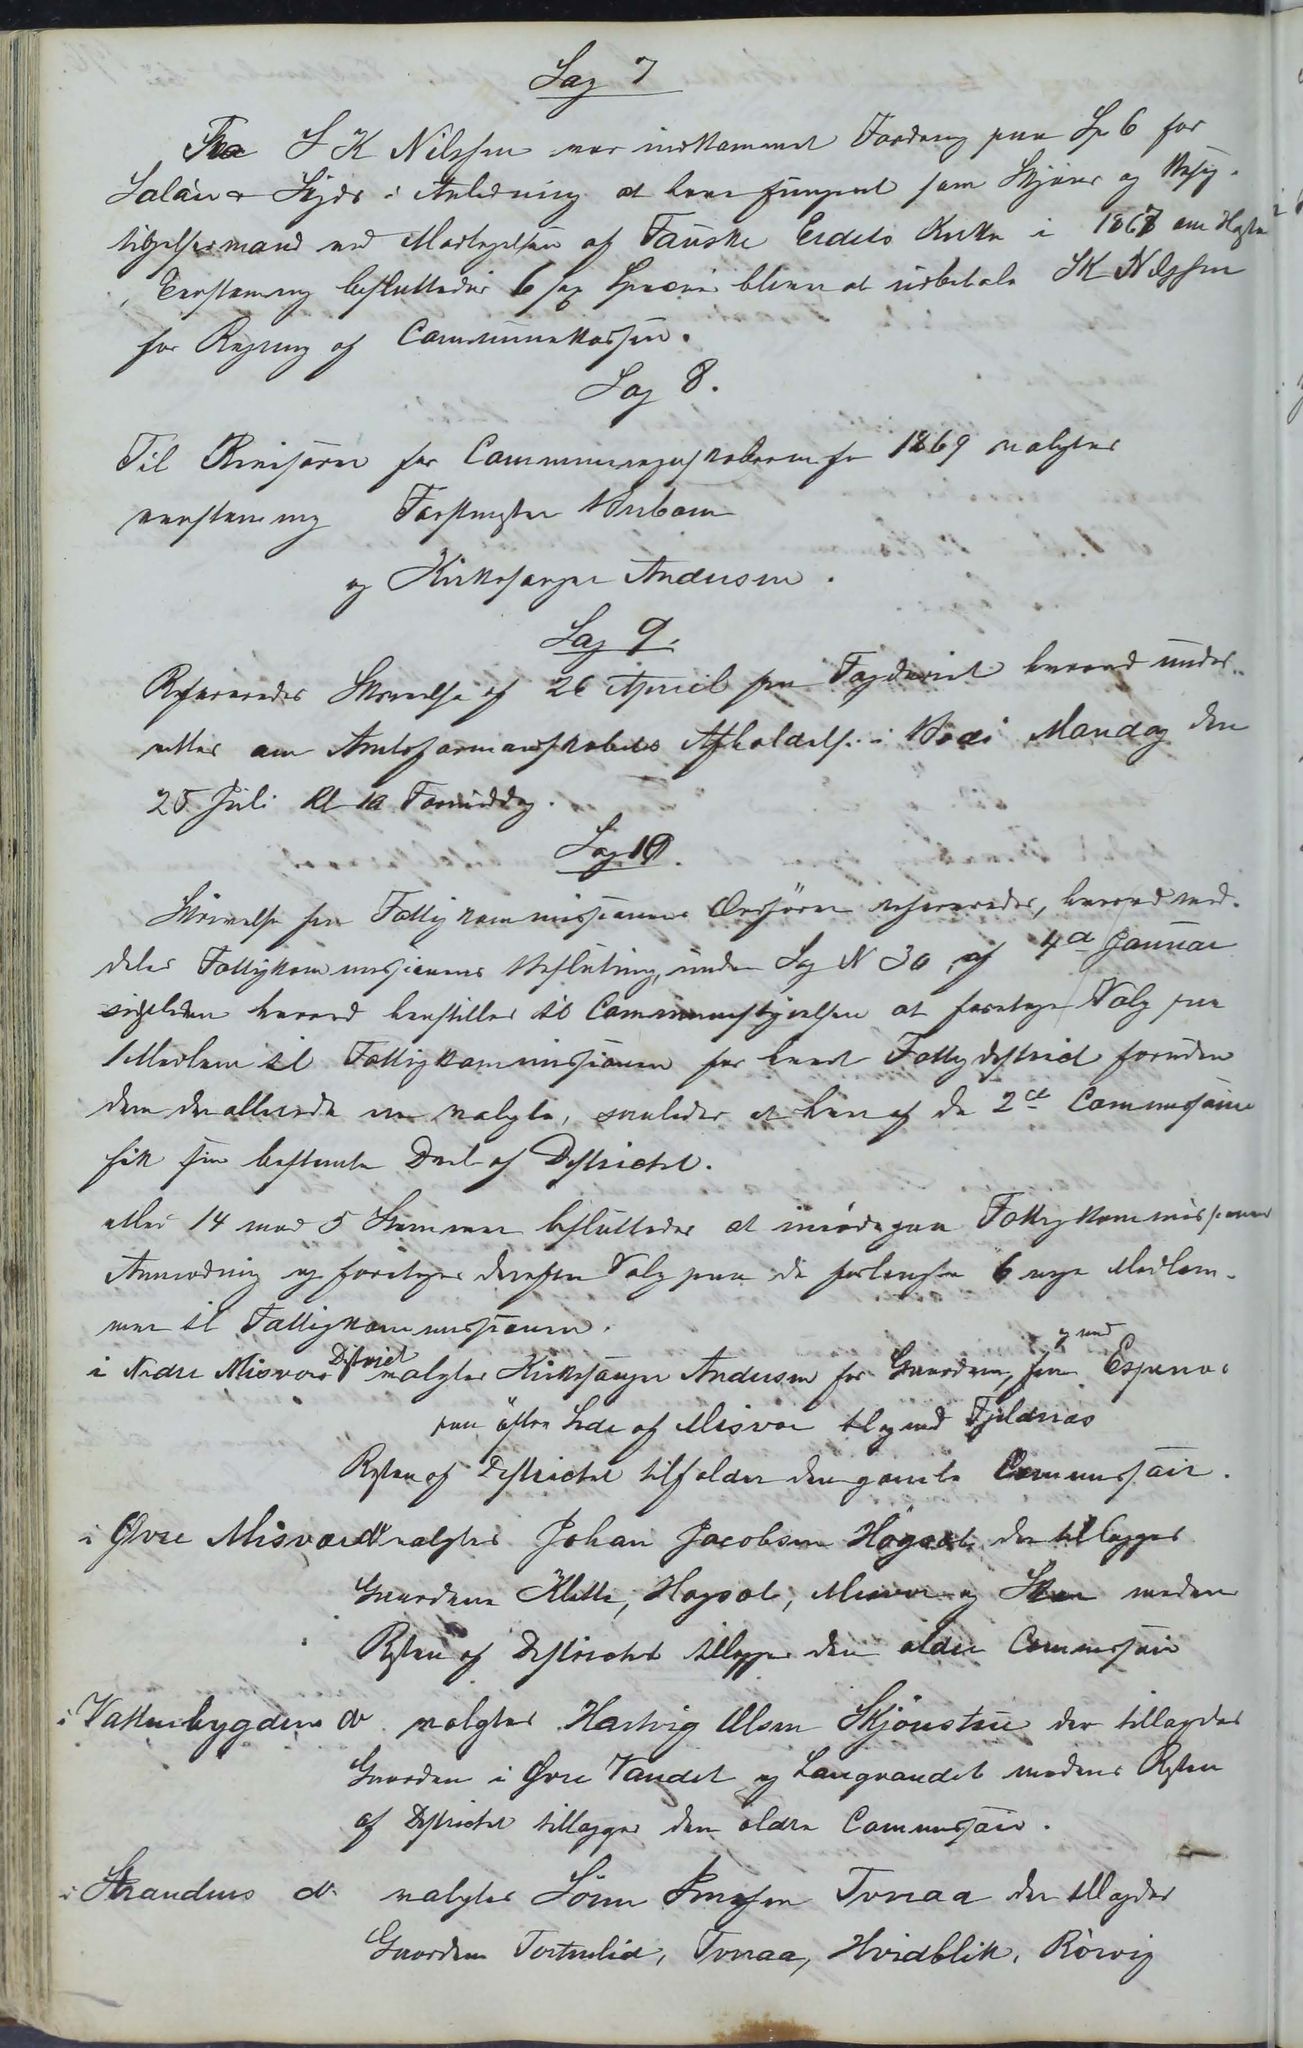 Sag 7
Fra S K Nilssen var indkommet Fordring paa Sp 6 for
Salær & Skyds i Anledning at have fungeret som Skjøns og Besig-
tigelsesmand ved Modtagelsen af Fauske Kirke i 1867 om Høsten
Eenstemmig besluttedes 6 sex Specier bliver at udbetale SK Nilssen
for Regning af Communekassen.
Sag 8.
Til Revisorer for Communeregnskaberne for 1869 valgtes
eenstemmig Forstmester
og Kirkesanger Andersen.
Sag 9.
Refereredes Skrivelse af 26 April fra Fogderiet hvorved under-
rettes om Amtsformandskabets Afholdelse i Bodø Mandag den
25 Juli Kl 10 Formiddag.
Sag 10.
Skrivelse fra Fattigkommissionens Ordfører refereredes, hvorved med-
deles Fattigkommissionens Beslutning, under Sag N 30 af 4de Januar
sidstleden hvorved henstilles til Communestyrelsen at foretage Valg paa
1 Medlem til Fattigkommissionen for hvert Fattigdistrict foruden
dem der allerede ere valgte, saaledes at hver af de 2de Commissairer
fik sin bestemte Deel af Districtet.
14 mod 5 Stemmer besluttedes at imødegaa Fattigkommissionens
Anmodning og foretoges derefter Valg paa de forlangte 6 nye Medlem-
mer til Fattigkommissionen.
i Nedre Misvær District valgtes Kirkesanger Andersen for Gaardene, fra og med Espenes
paa østre Side af Misvær til og med Fjeldnæs
Resten af Districtet tilfalder den gamle Commissair.
i Øvre Misvær do valgtes Johan Jacobsen Høgset der tillægges
Gaardene Klette, Hogset, Misvær og medens
Resten af Districtet tillægges den ældre Commissair
i Vattenbygdens do valgtes Hartvig Olsen Skjønstue der tillagdes
Gaardene i Øvre Vandet og Langvandet medens Resten
af Districtet tillægges den ældre Commissair.
i Strandens do valgtes Sønn Jensen Tveraa der tillagdes
Gaardene Tortenlid, Tveraa, Hvidblik, Rörvig